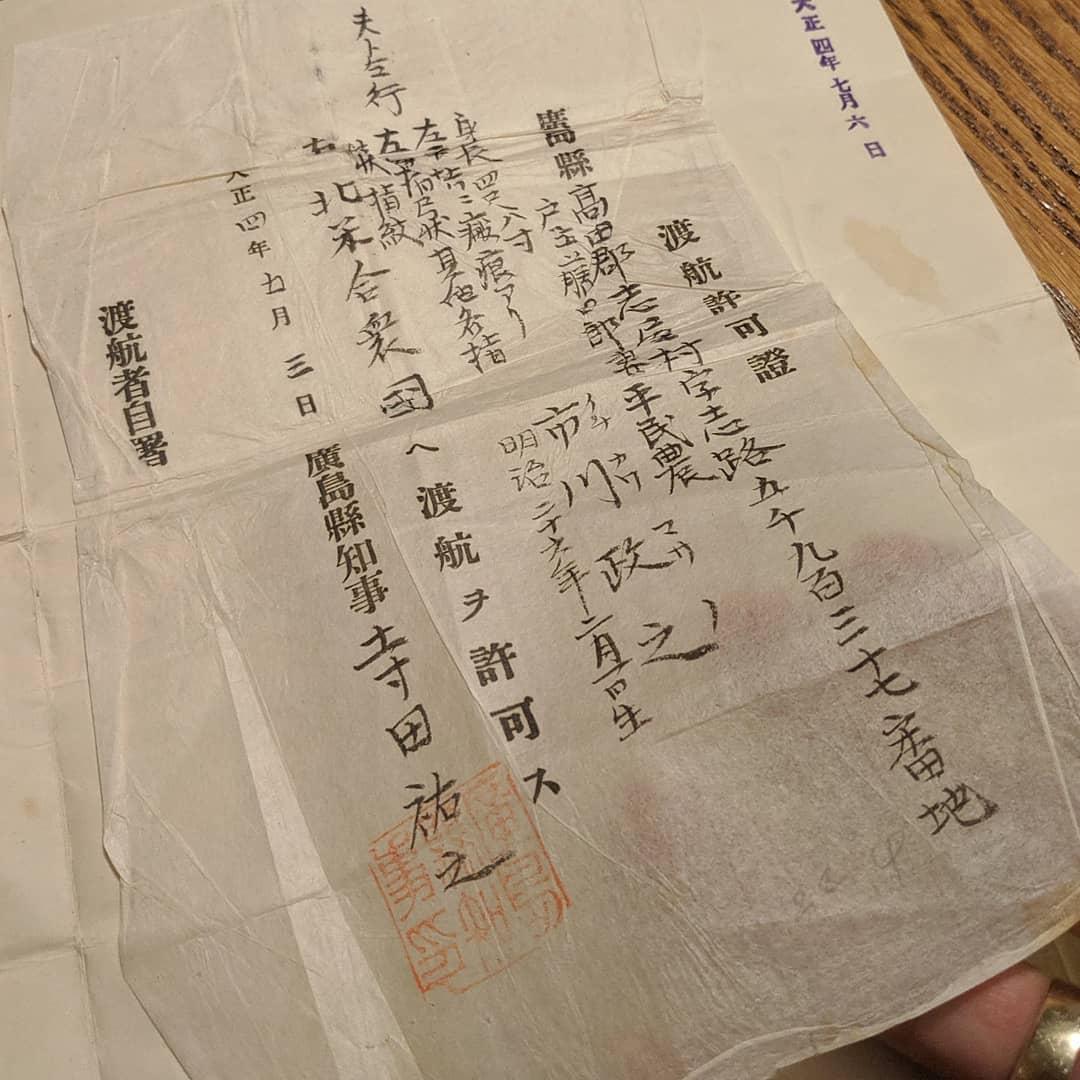 大正四年七月六日
渡航許可證
廣島縣高田郡志屋村字志路五千九百三十七番地
戸主 妻 平民農
市川政之
イチカワマサノ
明治二十六年二月 日生
身長四尺八寸
左 ニ瘢痕アリ
左 状其他各指
状指紋
夫ト同行
右北米合衆国ヘ渡航ヲ許可ス
大正四年七月三日
廣島縣知事寺田祐之
渡航者自署